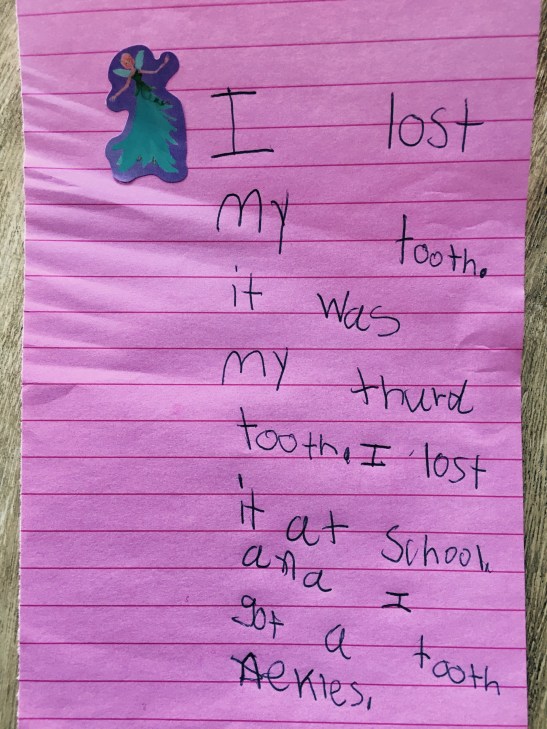 I lost
my tooth.
it was
my thurd
tooth. I lost
it at School.
and I
got a tooth
Aekies.